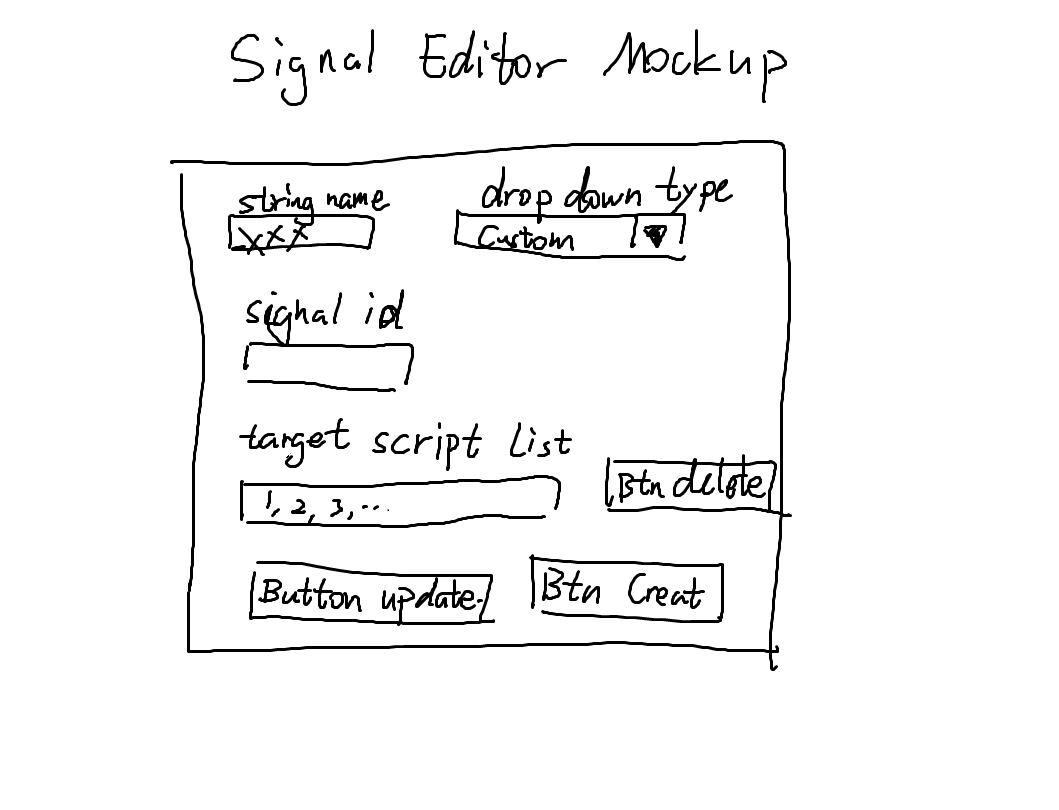 Signal Editor Mockup
string name
drop down type
xxx
Custom
signal id
target script List
1, 2, 3, ...
Btn delete
Button update
Btn Creat